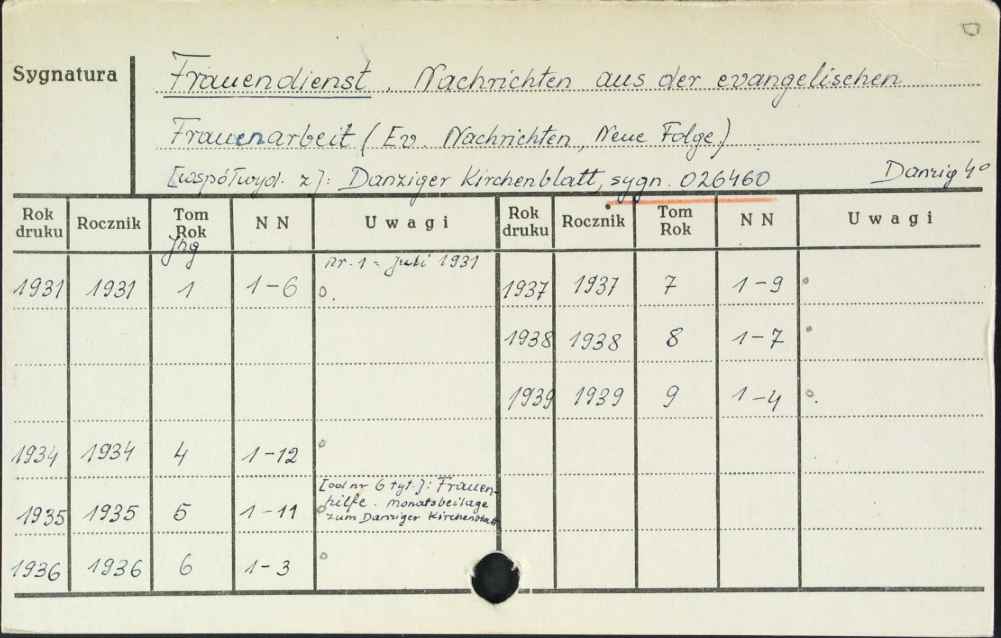 Sygnatura
Frauendienst. Nachrichten aus der evangelischen
Frauenarbeit (Ev. Nachrichten, Neue Folge)
[współwyd. z]: Danziger Kirchenblatt, sygn. 026460 Danzig 4°
Rok druku Rocznik Tom Rok Jhg N N Uwagi Rok druku Rocznik Tom Rok N N Uwagi
nr. 1 = Juli 1931
1931 1931 1 1-6 1937 1937 7 1-9
1938 1938 8 1-7
1939 1939 9 1-4
1934 1934 4 1-12
[od nr 6 tyt.]: Frauen-
hilfe. Monatsbeilage
1935 1935 5 1-11 zum Danziger Kirchenblatt
1936 1936 6 1-3